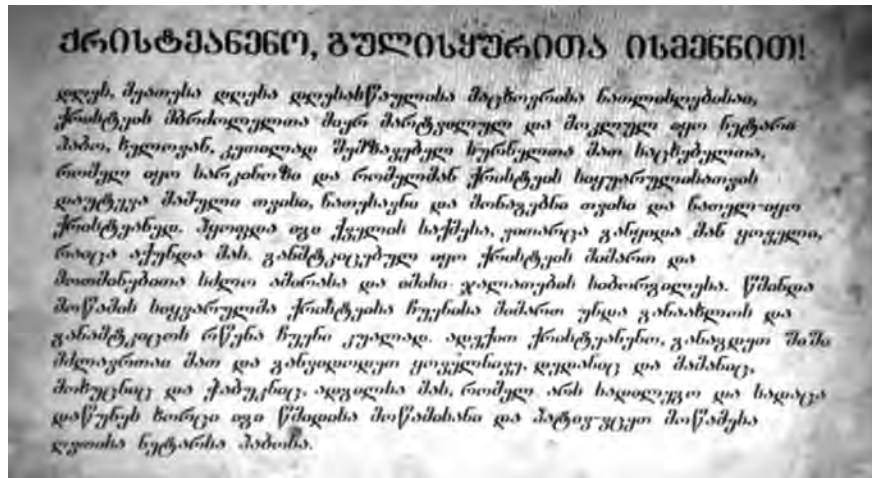 ქრისტეანენო, გულისყურითა ისმენნით!
დღეს, მეათესა დღესა დღესასწაულისა მაცხოვრისა ნათლისღებისაი,
ქრისტეის მბრძოლელთა მიერ მარტვილულ და მოკლულ იყო ნეტარი
ჰაბო, ხელოვან, კეთილად შემზავებელ სურნელთა მათ საცხებელთა,
რომელ იყო სარკინოზი და რომელმან ქრისტეის სიყუარულისათვის
დაუტევა მამული თვისი, ნათესავნი და მონაგებნი თვისი და ნათელ-იყო
ქრისტეანედ. ჰყოფდა იგი ქველის საქმესა, ვითარცა განყიდა მან ყოველი,
რაიცა აქუნდა მას. განმტკიცებულ იყო ქრისტეის მიმართ და
მოთმინებითა სძლო ამირასა და იმისი ჯალათების სიბორგილესა. წმინდა
მოწამის სიყვარულმა ქრისტეისა ჩუენისა მიმართ უნდა განაახლოს და
განამტკიცოს რწუნა ჩუენი კუალად. ადექით ქრისტეანენო, განაგდეთ შიში
მძლავრთაი მათ და განვიდოდეთ ყოველნივე, დედანიც და მამანიც,
მოხუცნიც და ჭაბუკნიც, ადგილსა მას, რომელ არს სადილეგო და სადაცა
დაწუნეს ხორცი იგი წმიდისა მოწამისანი და პატივ-ვცეთ მოწამესა
ღვთისა ნეტარსა ჰაბოსა.